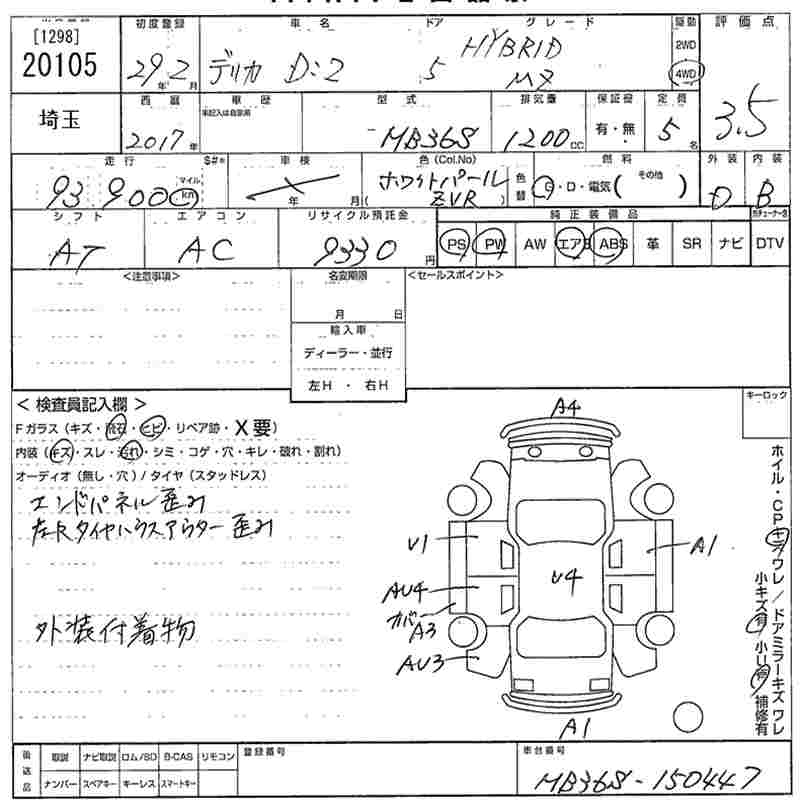 [1298]
20105
初度登録 車名 ドア グレード 駆動 評価点
29年2月 デリカ D:2 5 HYBRID MZ
2WD
4WD
3.5
埼玉
西暦 車歴 型式 排気量 保証書 定員
未記入は自家用
2017年 MB36S 1200cc 有・無 5名
走行 S#※ 車検 色(Col.No) 燃料 外装 内装
93,900 マイル km 年 月 ( ホワイトパール ZVR ) 色替 G・D・電気( その他 ) D B
シフト エアコン リサイクル預託金 純正装備品
AT AC 9330円 PS PW AW エアB ABS 革 SR ナビ DTV
<注意事項> 名変期限 <セールスポイント>
月 日
輸入車
ディーラー・並行
左H ・ 右H
< 検査員記入欄 >
キーロック
Fガラス(キズ・飛石・ヒビ・リペア跡・X要)
内装(キズ・スレ・汚れ・シミ・コゲ・穴・キレ・破れ・割れ)
オーディオ(無し・穴)/タイヤ(スタッドレス)
エンドパネル歪み
左Rタイヤハウスアウター歪み
外装付着物
A4
U1
A1
U4
AU4
カバー A3
AU3
A1
ホイル・CPキズワレ/ドアミラーキズワレ
小キズ有 小U有 補修有
後送品 取説 ナビ取説 ロム/SD B-CAS リモコン
ナンバー スペアキー キーレス スマートキー
登録番号
車台番号
MB36S-150447